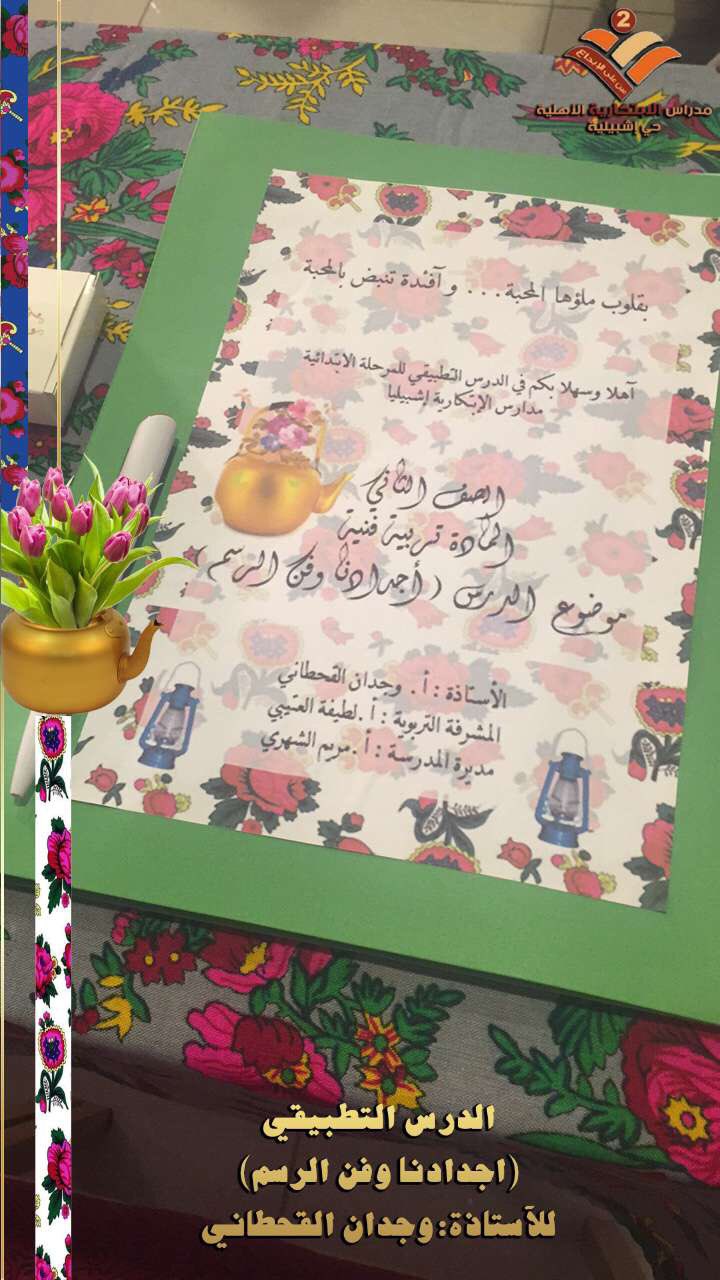 2
نبني على الإبداع
مدارس الابتكارية الأهلية
حي إشبيلية
بقلوب ملؤها المحبة... و آفئدة تنبض بالمحبة
آهلا وسهلا بكم في الدرس التطبيقي للمرحلة الابتدائية
مدارس الإبتكارية إشبيليا
الصف الثاني
المادة تربية فنية
موضوع الدرس ( أجدادنا وفن الرسم )
الأستاذة : أ . وجدان القحطاني
المشرفة التربوية : أ .لطيفة العتيبي
مديرة المدرسة : أ .مريم الشهري
الدرس التطبيقي
(اجدادنا وفن الرسم)
للآستاذة:وجدان القحطاني